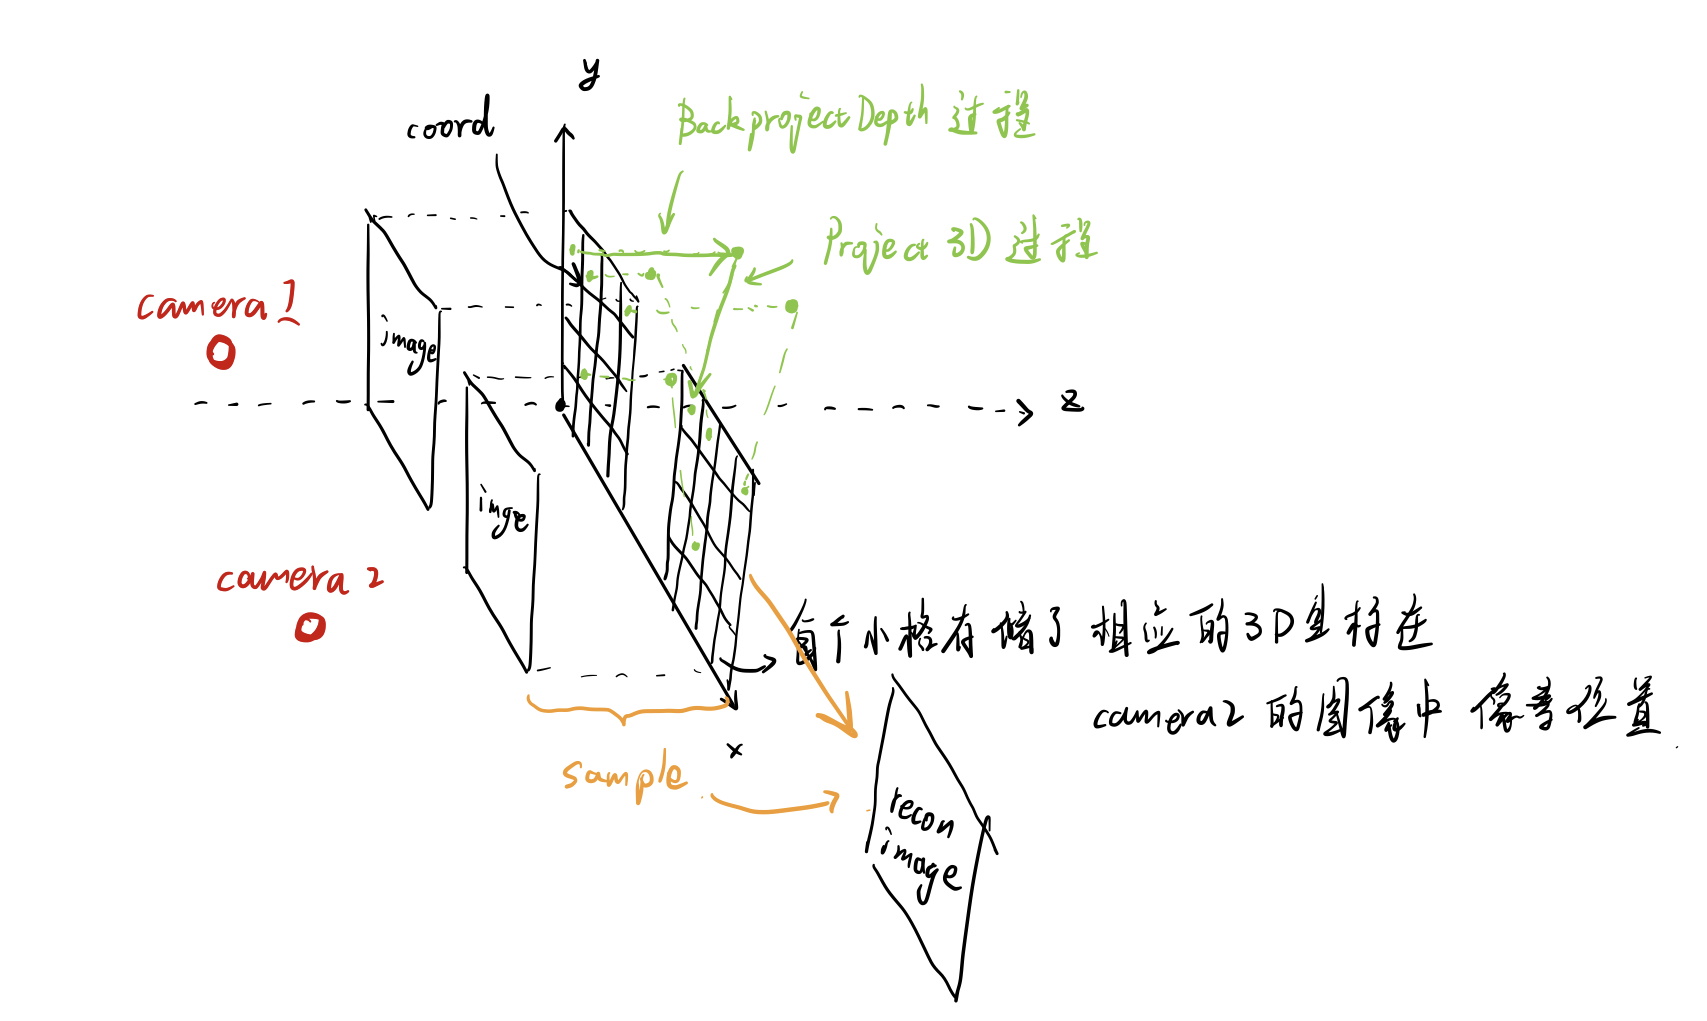 y
coord
BackprojectDepth 过程
Project 3D 过程
camera 1
image
z
imge
camera 2
每个小格存储了相应的3D坐标在
camera2 的图像中 像素位置
x
sample
recon
image